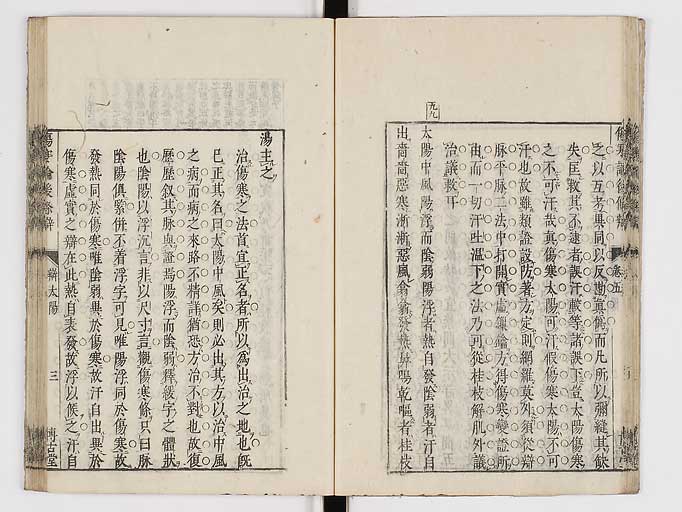 之以互考異同以反勘真僞而凡所以彌縫其餘
失匡救其不逮者誤汗較等諸誤下豈太陽傷寒
之不可汗哉眞傷寒太陽可汗假傷寒太陽不可
汗也故雖類證設防著方定則網羅莫外須從辯
脉平脉二法中打開實處纔得傷寒變證所
由而一切汗吐溫下之法乃可從桂枝解肌外議
治議救耳
九九
太陽中風陽浮而陰弱陽浮者熱自發陰弱者汗自
出嗇嗇惡寒淅淅惡風翕翕發熱鼻鳴乾嘔者桂枝
卷五
湯主之
治傷寒之法首宜正名者所以爲出治之地也既
已正其名曰太陽中風矣則必出其方以治中風
之病而病之來路不精詳猶恐方治不對也故復
歷歷叙其脉與證焉陽浮而陰弱釋緩字之體狀
也陰陽以浮沉言非以尺寸言觀傷寒條只曰脉
陰陽俱緊併不着浮字可見唯陽浮同於傷寒故
發熱同於傷寒唯陰弱異於傷寒故汗自出異於
傷寒虛實之辯在此熱自表發故浮以候之汗自
辯太陽
三
博古堂